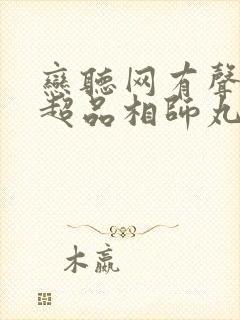 戀聽网有聲
超品相師丸
木嬴